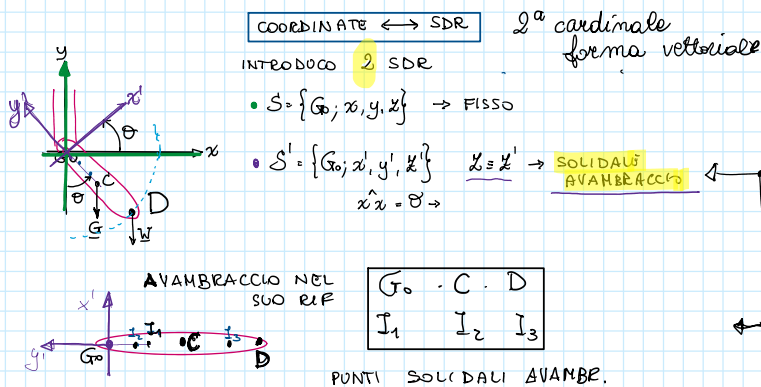 COORDINATE ⟷ SDR
2ª cardinale
forma vettoriale
INTRODUCO 2 SDR
• S = {G₀; x, y, z} → FISSO
• S' = {G₀; x', y', z'} z ≡ z' → SOLIDALE
AVAMBRACCIO
x^x = θ →
y
y'
x'
θ
x
C
θ
D
G
W
AVAMBRACCIO NEL
SUO RIF
x'
y'
G₀
I₂
I₁
C
I₃
D
G₀ · C · D
I₁ I₂ I₃
PUNTI SOLIDALI AVAMBR.